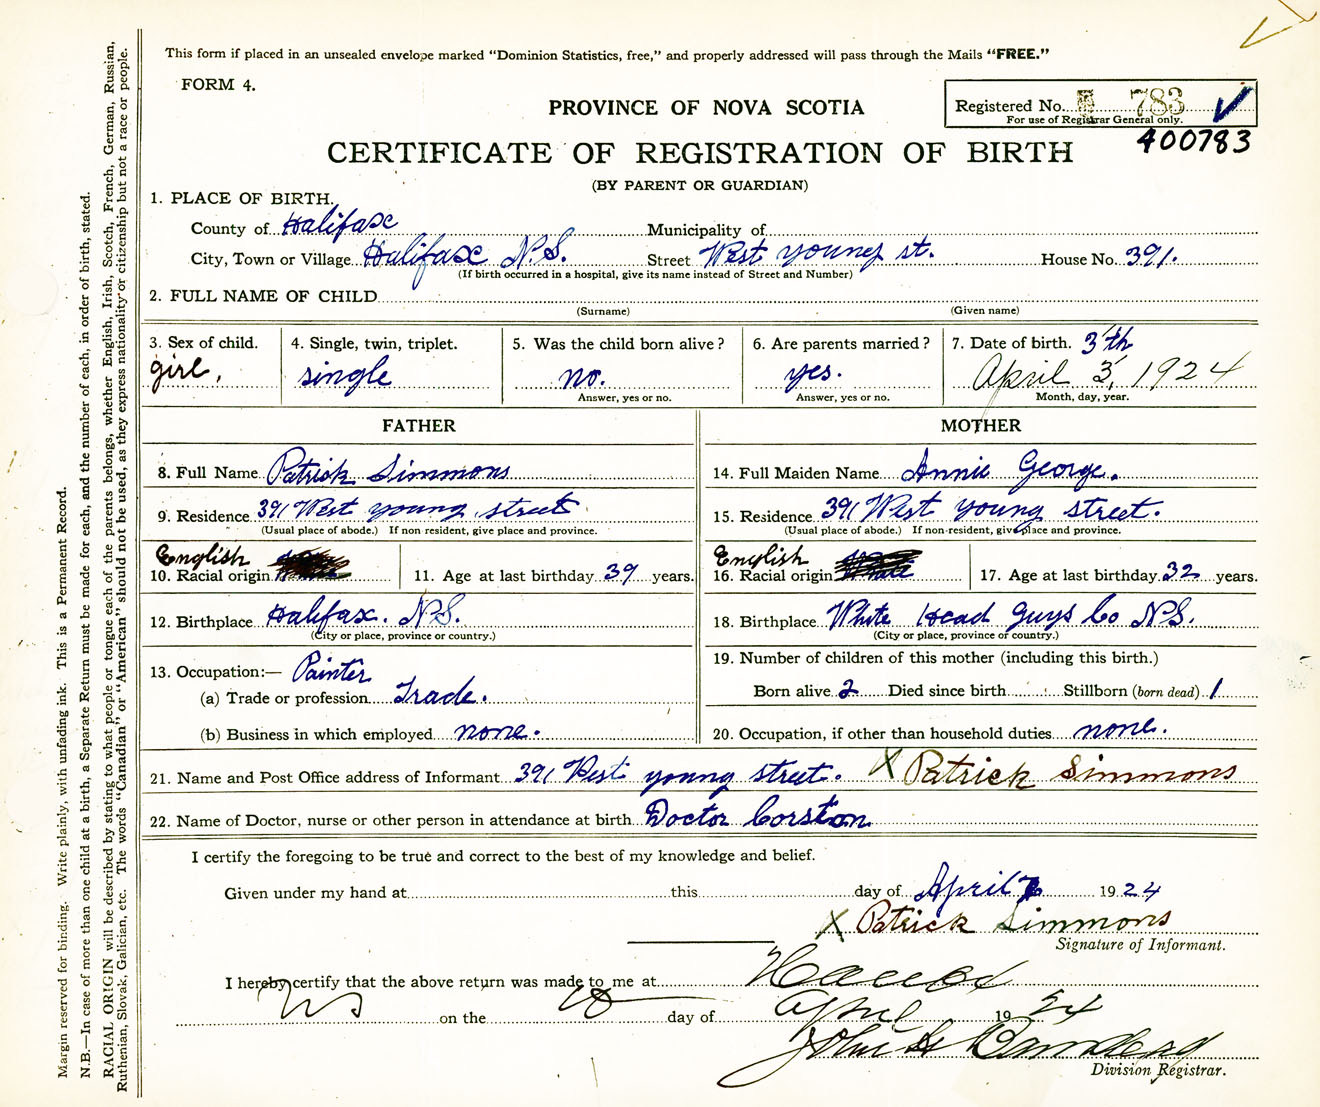 This form if placed in an unsealed envelope marked "Dominion Statistics, free," and properly addressed will pass through the Mails "FREE."
FORM 4.
PROVINCE OF NOVA SCOTIA
Registered No. 783
For use of Registrar General only.
400783
CERTIFICATE OF REGISTRATION OF BIRTH
(BY PARENT OR GUARDIAN)
1. PLACE OF BIRTH.
County of Halifax Municipality of
City, Town or Village Halifax N.S. Street West young st. House No. 391.
(If birth occurred in a hospital, give its name instead of Street and Number)
2. FULL NAME OF CHILD
(Surname) (Given name)
3. Sex of child. 4. Single, twin, triplet. 5. Was the child born alive? 6. Are parents married? 7. Date of birth. 3'th
girl, single no. yes. April 3, 1924
Answer, yes or no. Answer, yes or no. Month, day, year.
FATHER MOTHER
8. Full Name Patrick Simmons 14. Full Maiden Name Annie George.
9. Residence 391 West young street 15. Residence 391 West young street.
(Usual place of abode.) If non-resident, give place and province. (Usual place of abode.) If non-resident, give place and province.
English English
10. Racial origin 11. Age at last birthday 39 years. 16. Racial origin 17. Age at last birthday 32 years.
12. Birthplace Halifax. N.S. 18. Birthplace White Head Guys Co N.S.
(City or place, province or country.) (City or place, province or country.)
13. Occupation:— Painter 19. Number of children of this mother (including this birth.)
(a) Trade or profession Trade. Born alive 2 Died since birth Stillborn (born dead) 1
(b) Business in which employed none. 20. Occupation, if other than household duties none.
21. Name and Post Office address of Informant 391 West young street. X Patrick Simmons
22. Name of Doctor, nurse or other person in attendance at birth Doctor Corston
I certify the foregoing to be true and correct to the best of my knowledge and belief.
Given under my hand at this day of April 7 1924
X Patrick Simmons
Signature of Informant.
I hereby certify that the above return was made to me at
NS on the day of April 1924
John
Division Registrar.
Margin reserved for binding. Write plainly, with unfading ink. This is a Permanent Record.
N.B.—In case of more than one child at a birth, a Separate Return must be made for each, and the number of each, in order of birth, stated.
RACIAL ORIGIN will be described by stating to what people or tongue each of the parents belongs, whether English, Irish, Scotch, French, German, Russian,
Ruthenian, Slovak, Galician, etc. The words "Canadian" or "American" should not be used, as they express nationality or citizenship but not a race or people.